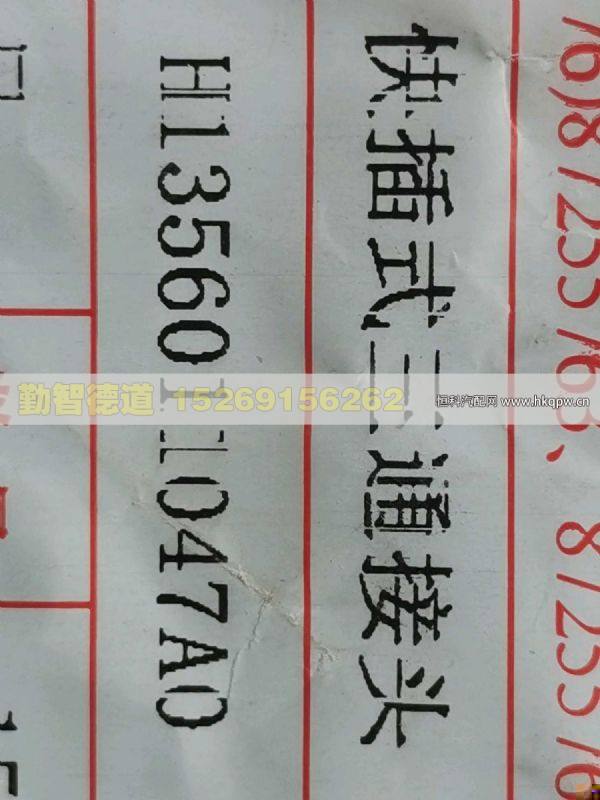 76)87255763、8725576
快插式三通接头
H1356011047A0
勤智德道 15269156262
恒科汽配网 www.hkqpw.cn